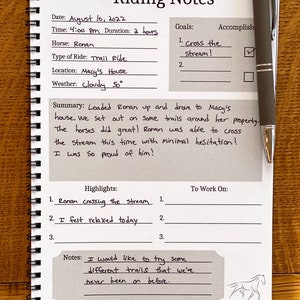 Riding Notes
Date: August 10, 2022
Time: 4:00 pm Duration: 2 hours
Horse: Ronan
Type of Ride: Trail Ride
Location: Macy's House
Weather: Cloudy 50°
Goals: Accomplish
1. Cross the
stream!
2.
Summary: Loaded Ronan up and drove to Macy's
house. We set out on some trails around her property.
The horses did great! Ronan was able to cross
the stream this time with minimal hesitation!
I was so proud of him!
Highlights: To Work On:
1. Ronan crossing the stream 1.
2. I felt relaxed today 2.
3. 3.
Notes: I would like to try some
different trails that we've
never been on before.